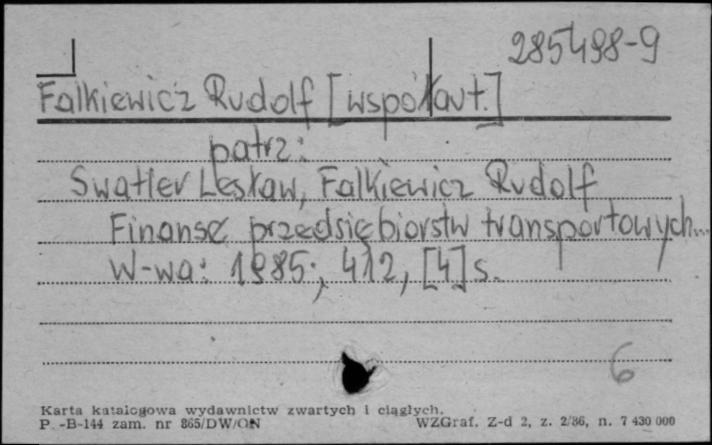 285498-9
Falkiewicz Rudolf [współaut.]
patrz:
Swatler Lesław, Falkiewicz Rudolf
Finanse przedsiębiorstw transportowych...
W-wa: 1985; 412, [4] s.
6
Karta katalogowa wydawnictw zwartych i ciągłych.
P. -B-144 zam. nr 865/DW/ON WZGraf. Z-d 2, z. 2/86, n. 7 430 000